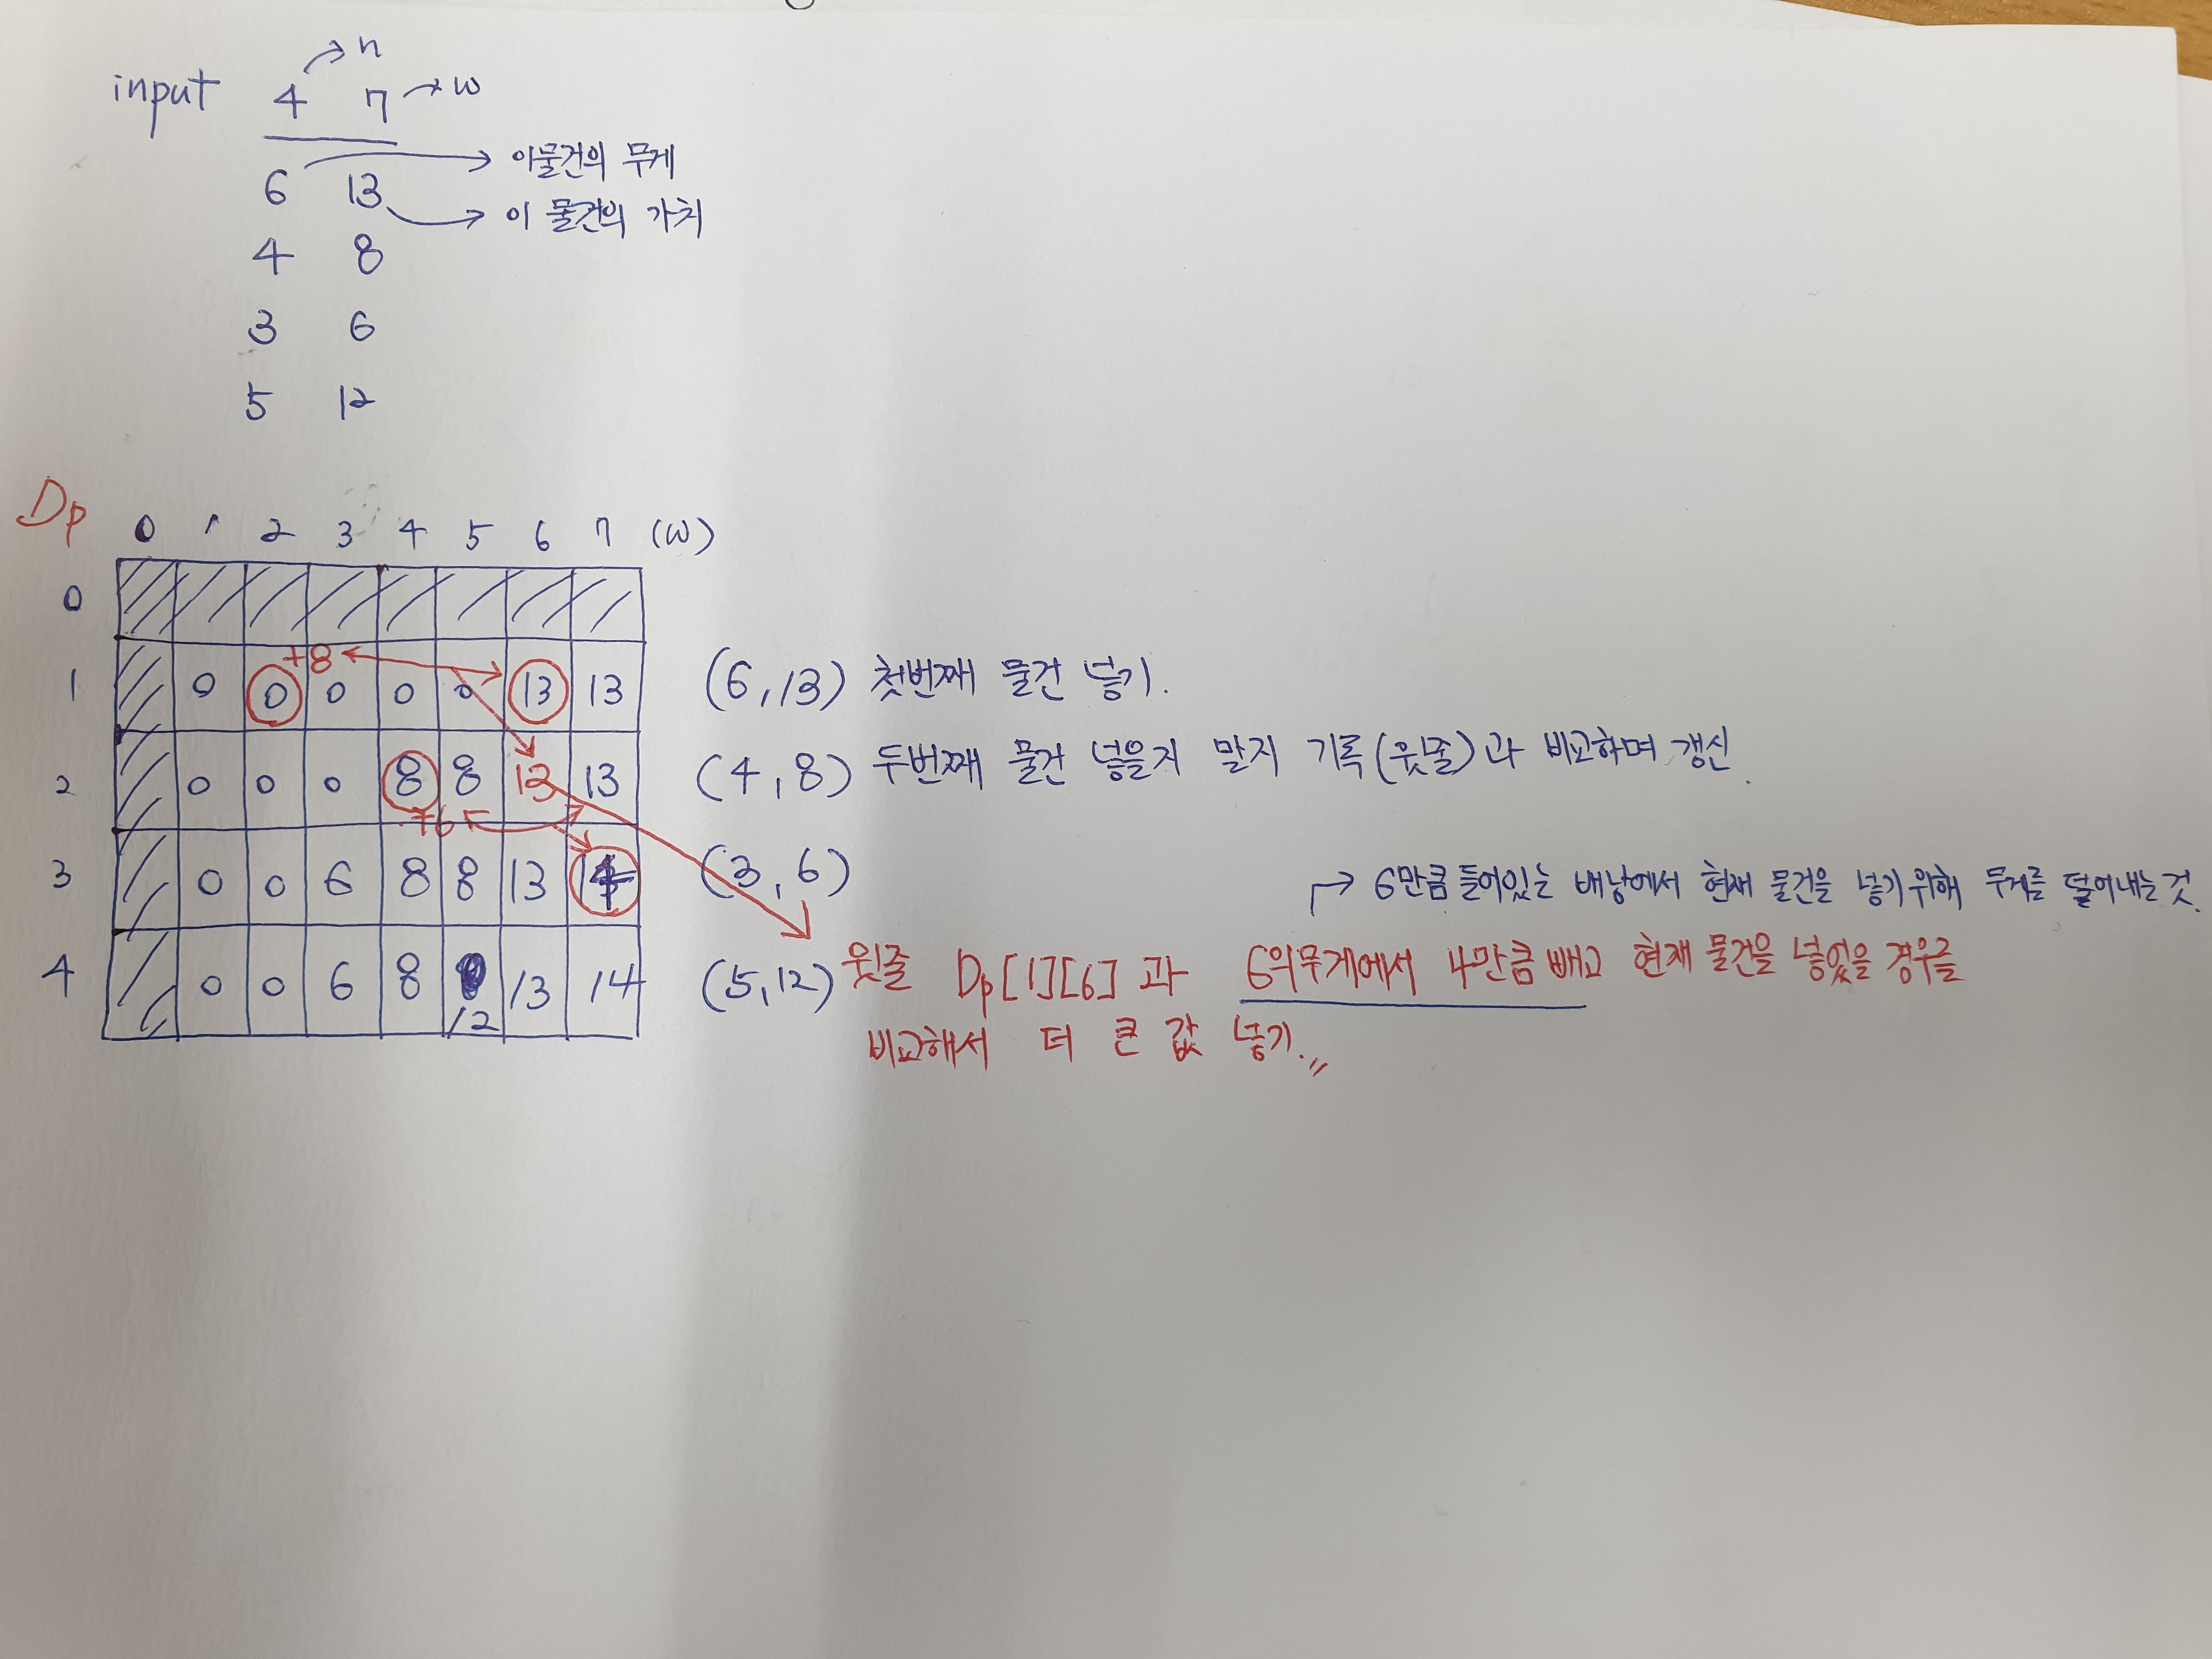 input 4 7 → n → w
6 13 → 이물건의 무게
→ 이 물건의 가치
4 8
3 6
5 12
Dp 0 1 2 3 4 5 6 7 (w)
0
+8
1 0 0 0 0 0 13 13 (6,13) 첫번째 물건 넣기.
2 0 0 0 8 8 13 13 (4,8) 두번째 물건 넣을지 말지 기록(윗줄)과 비교하며 갱신.
+6
3 0 0 6 8 8 13 14 (3,6)
→ 6만큼 들어있는 배낭에서 현재 물건을 넣기위해 무게를 덜어내는것.
4 0 0 6 8 12 13 14 (5,12) 윗줄 Dp[1][6] 과 6의무게에서 4만큼 빼고 현재 물건을 넣었을 경우를
비교해서 더 큰 값 넣기.〃